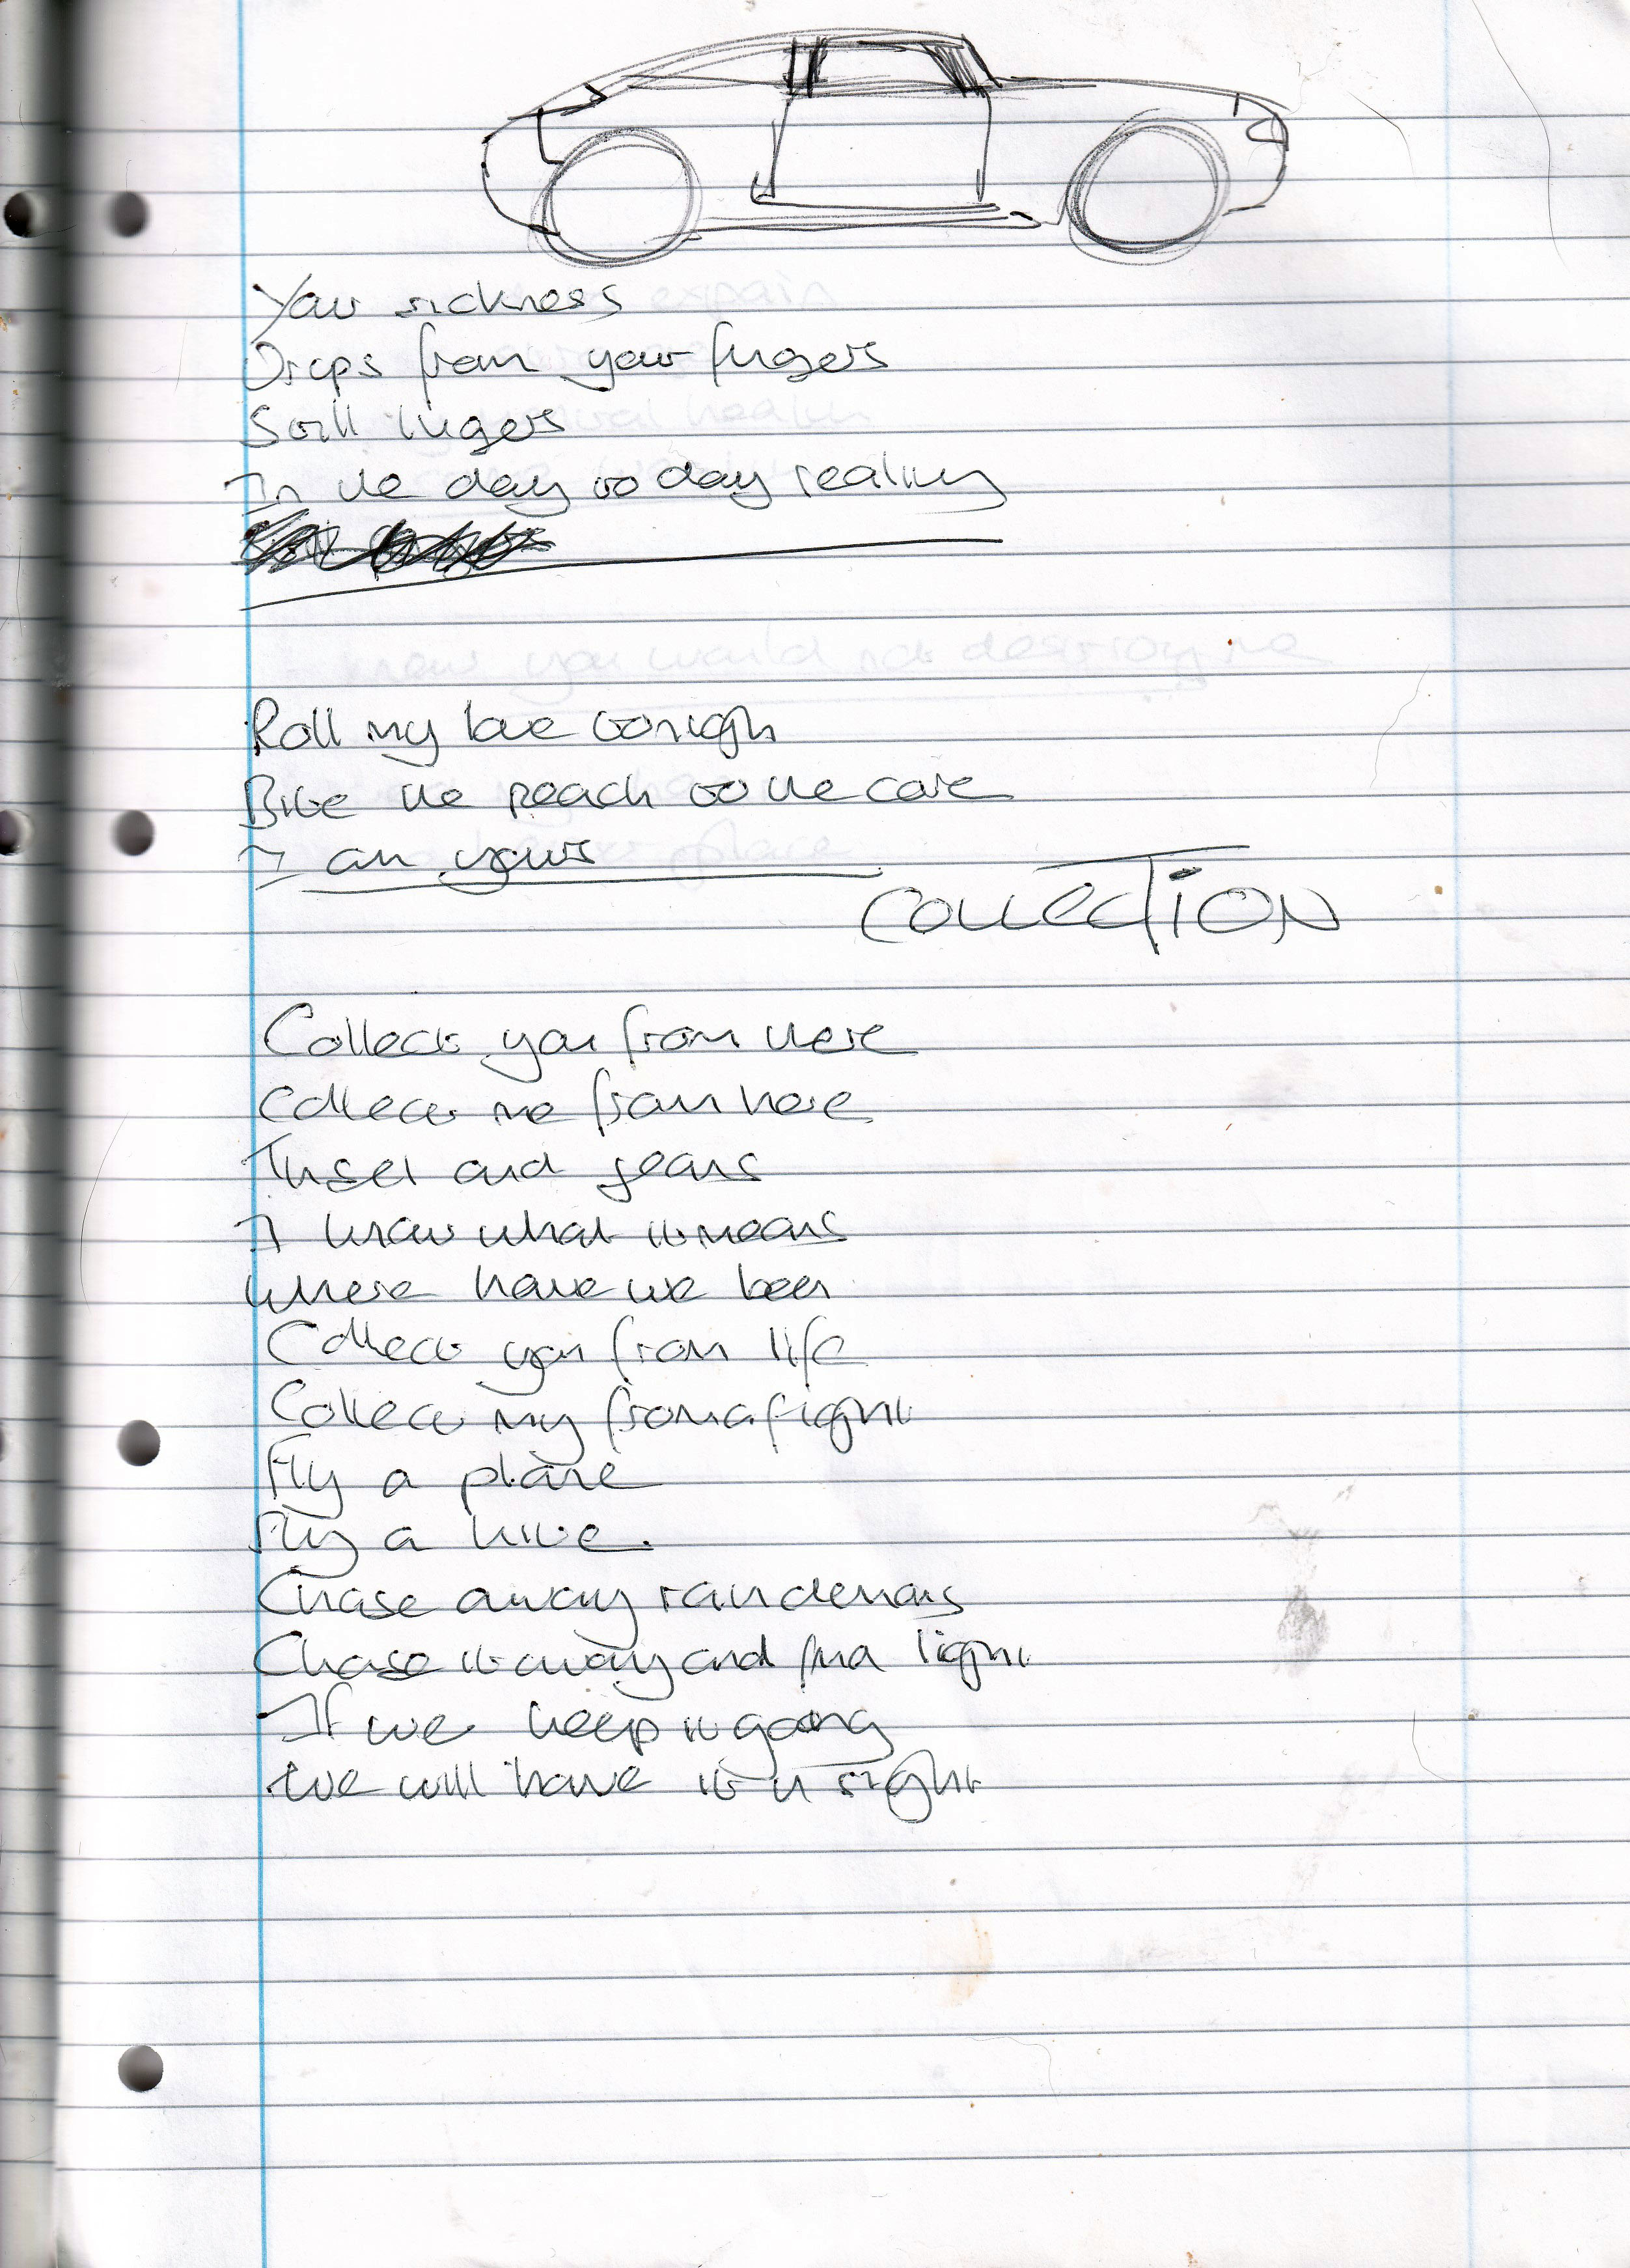 Your sickness
Drips from your fingers
Still lingers
In the day to day reality
Roll my love tonight
Bite the peach to the core
I am yours
COLLECTION
Collect you from there
Collect me from here
Tinsel and jeans
I know what it means
Where have we been
Collect you from life
Collect my from a fight
Fly a plane
Fly a kite.
Chase away rain demons
Chase it away and find light
If we keep it going
We will have it in sight